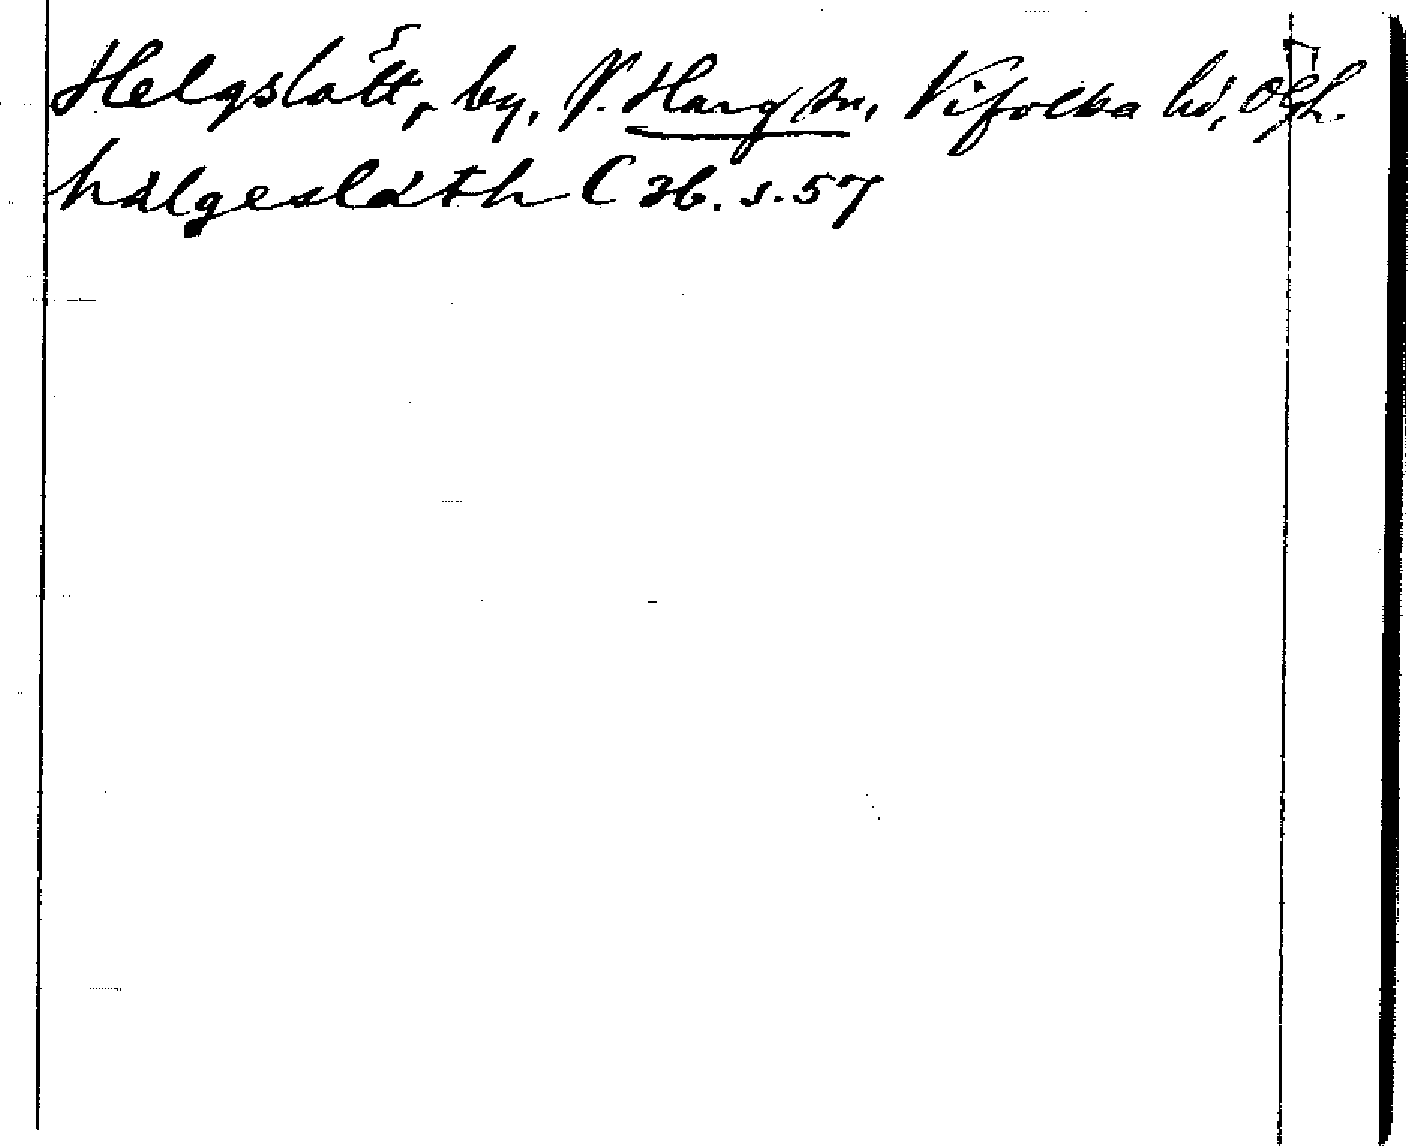 Helgslätt, by, V. Harg sn, Vifolka hd, Ögl.
hälgesläth C 36. s. 57